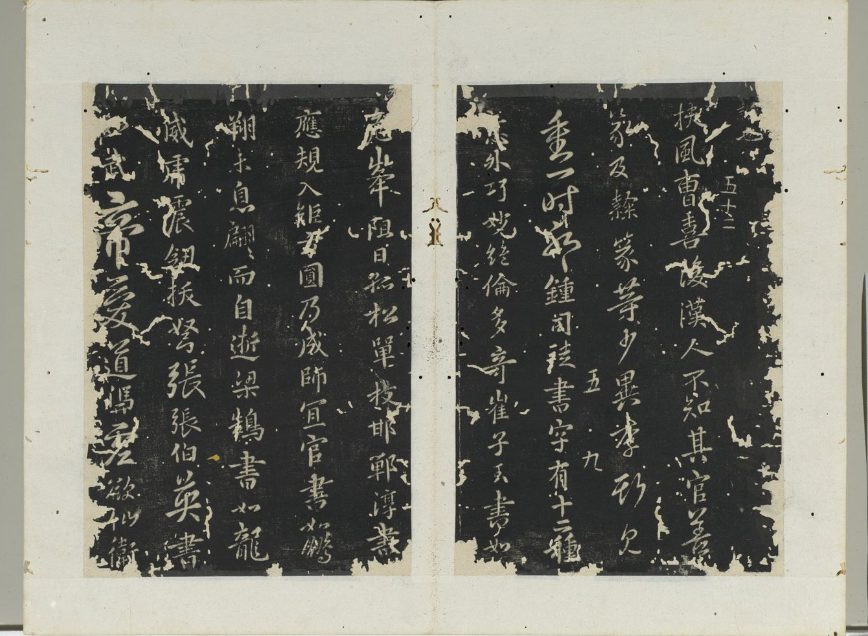 五十二
扶風曹喜後漢人不知其官善
篆及隸篆等少異李斯見
五 九
重一時鍾司徒書字有十二種
意外巧妙絕倫多奇崔子玉書如
危峯阻日孤松單枝邯鄲淳書
應規入矩方圓乃成師宜官書如鵬
翔未息翩翩而自逝梁鵠書如龍
威虎震劒拔弩張張伯英書
如武帝愛道憑虛欲仙衛